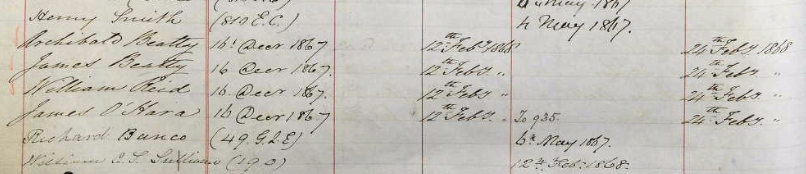 Henry Smith (810 E.C.) 4 May 1867.
Archibald Beatty 16 Decr 1867 12th Feby 1868 24th Feby 1868
James Beatty 16 Decr 1867. 12th Feby. " 24th Feby. "
William Reid 16 Decr 1867. 12th Feby. " 24th Feby. "
James O'Hara 16 Decr 1867 12th Feby. " To 935. 24th Feby. "
Richard Bunco (49. G.L.E) 6th May 1867.
William C. S. (190) 12th Feb. 1868.